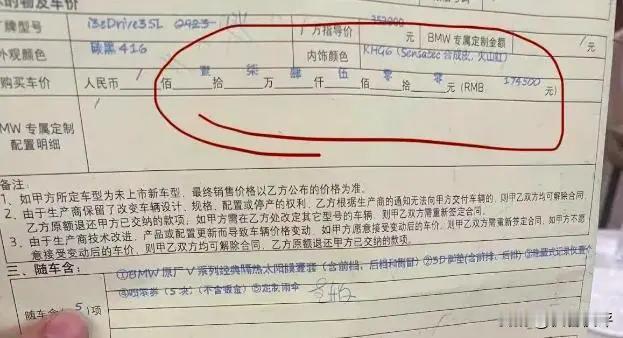 的物及车价
厂牌型号 i3eDrive35L 2023 厂方指导价 353900 BMW 专属定制金额 / 元
外观颜色 碳黑416 内饰颜色 KHG6 (Sensatec 合成皮, 火山红)
购买车价 人民币 / 佰 壹 拾 柒 万 肆 仟 伍 佰 零 拾 零 元 (RMB 174500 元)
BMW 专属定制
配置明细
备注:
1、如甲方所定车型为未上市新车型,最终销售价格以乙方公布的价格为准。
2、由于生产商保留了改变车辆设计、规格、配置或停产的权利,乙方根据生产商的通知无法向甲方交付车辆的,则甲乙双方均可解除合同,
乙方原额退还甲方已交纳的款项,如甲方需在乙方处改定其它型号的车辆,则甲乙双方需重新签定合同。
3、由于生产商技术改进、产品或配置更新而导致车辆价格变动,如甲方愿意接受变动后的车价,则甲乙双方需重新签定合同,如甲方不愿
意接受变动后的车价,则甲乙双方均可解除合同,乙方原额退还甲方已交纳的款项。
三、随车含:
随车含( 5 )项
①BMW原厂V系列经典隔热太阳膜壹套(含前档、后档和侧窗)②3D脚垫(含前排、后排)③隐藏式记录仪壹个
(5块)(不含钣金)⑤定制雨伞